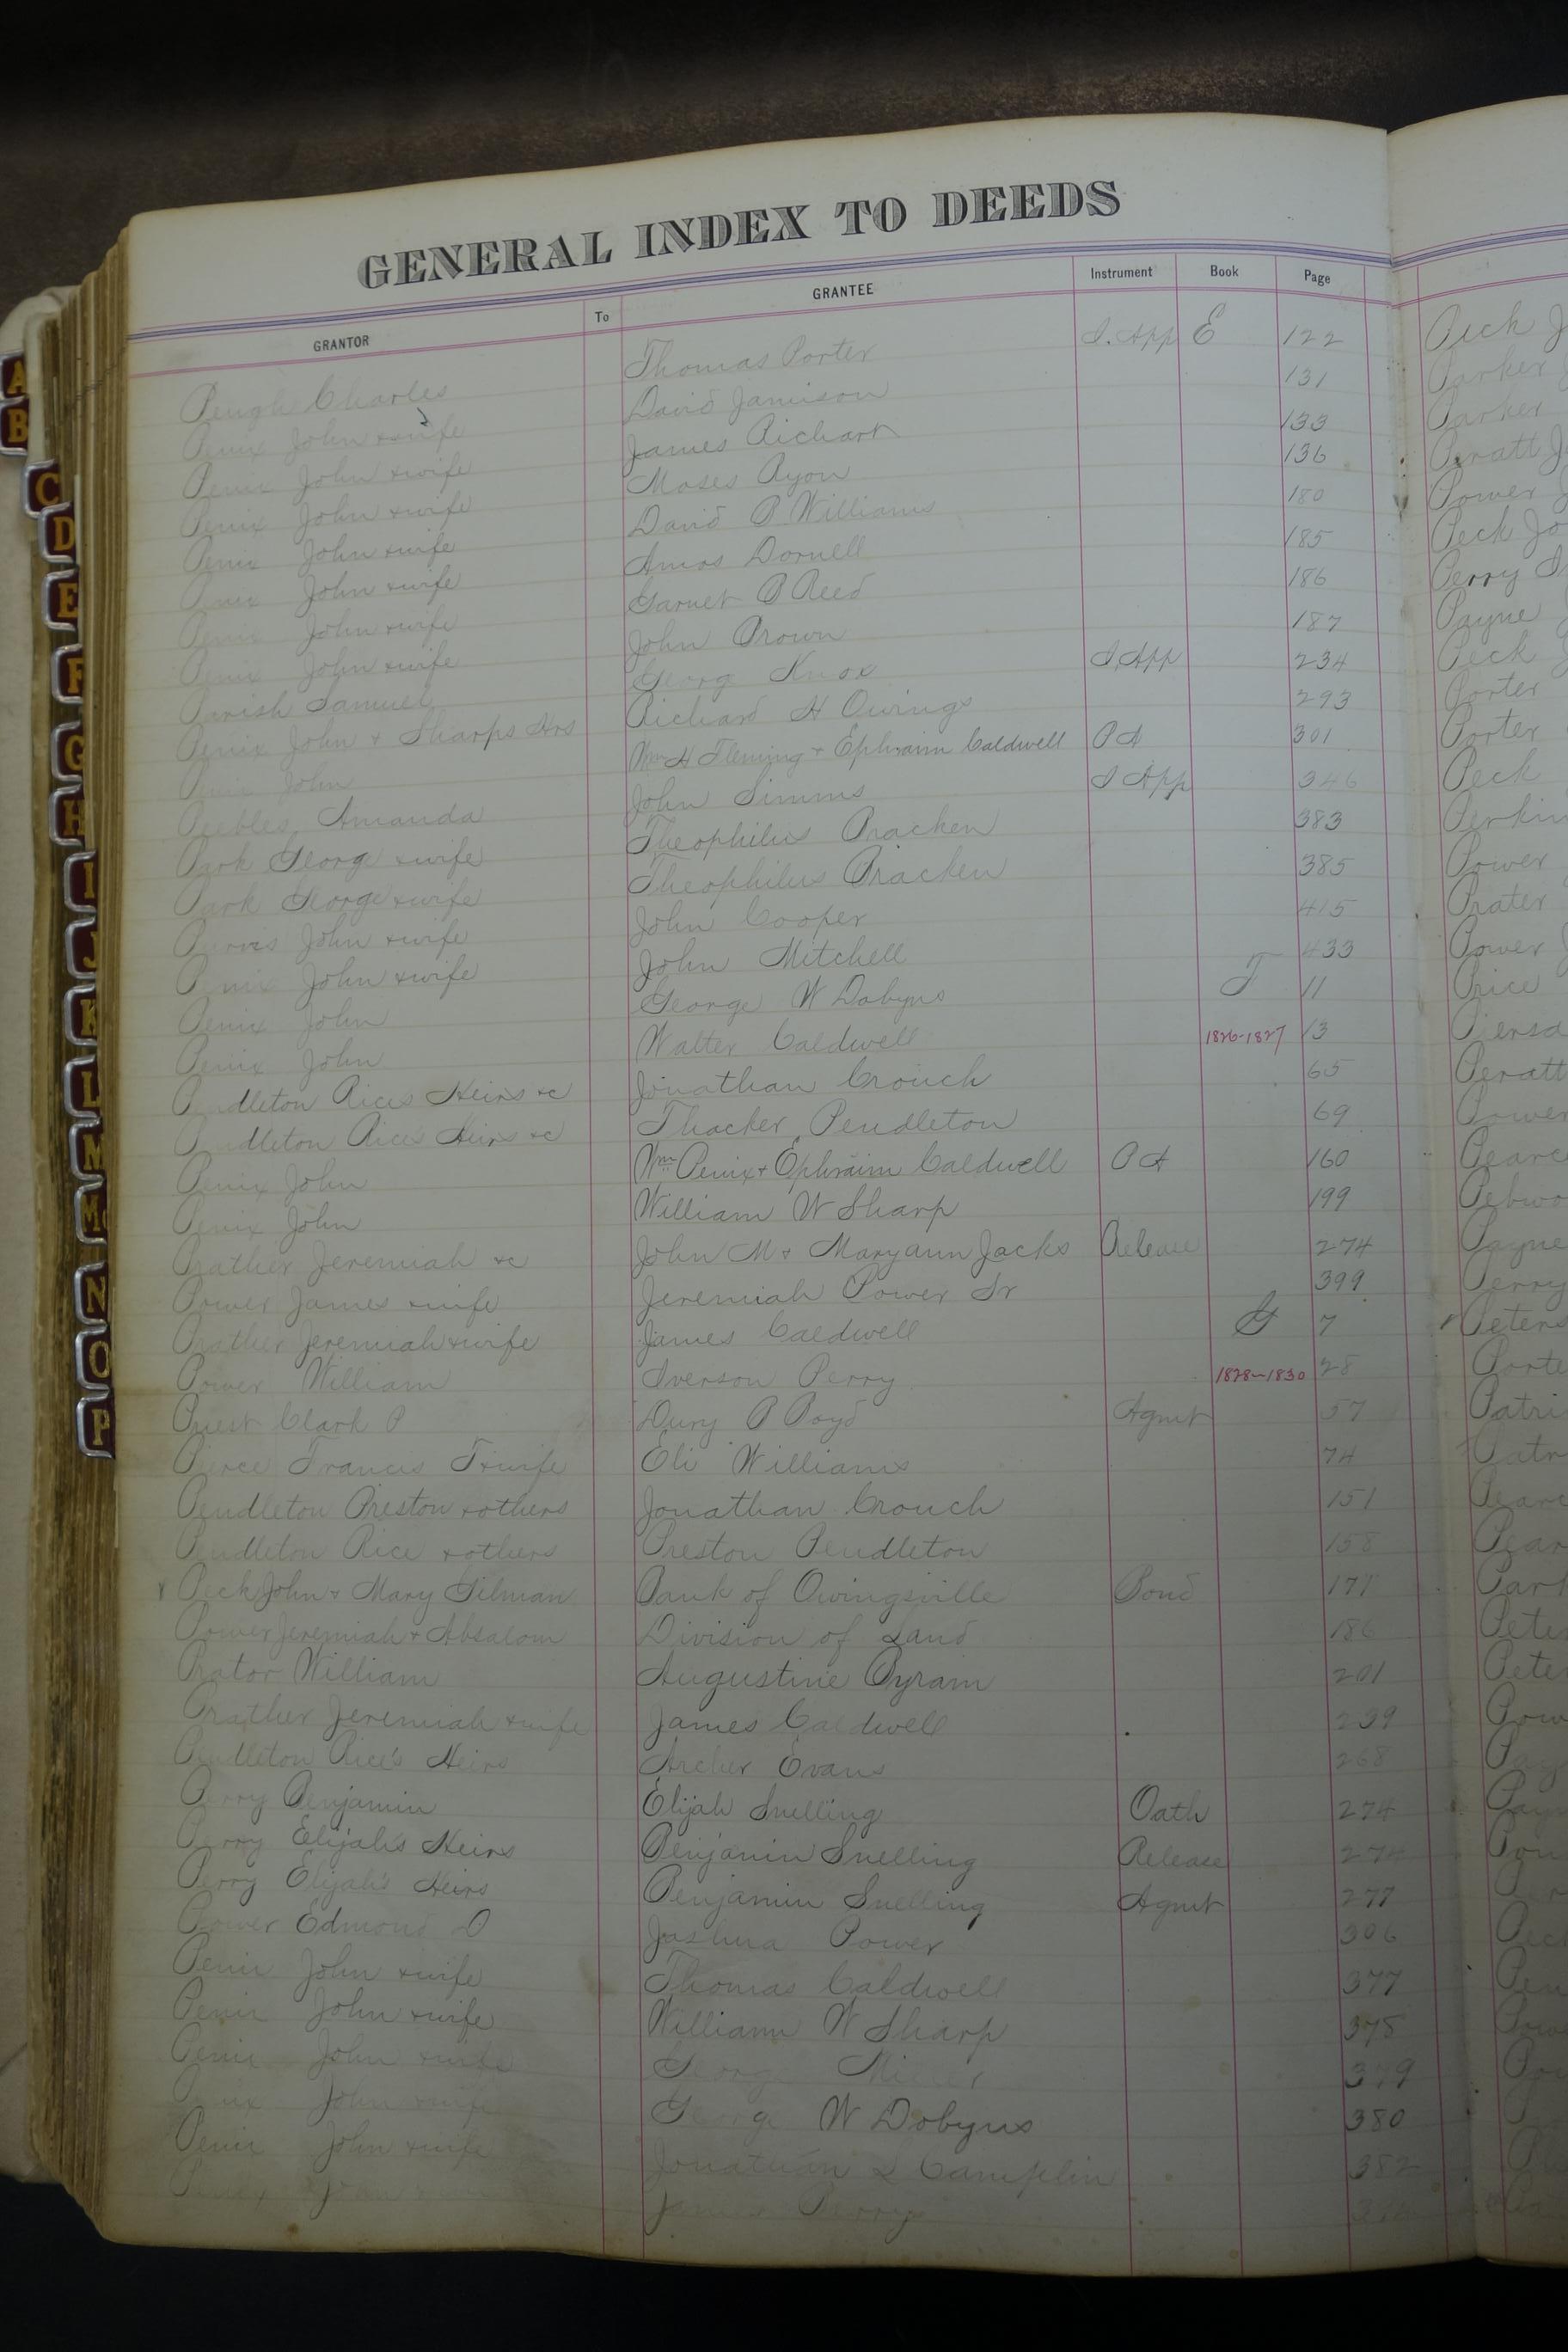 GENERAL INDEX TO DEEDS
GRANTOR To GRANTEE Instrument Book Page
Peugh Charles Thomas Porter I. App E 122
Penix John & wife David Jamison 131
Penix John & wife James Richart 133
Penix John & wife Moses Ryon 136
Penix John & wife David B Williams 180
Penix John & wife Amos Dornell 185
Penix John & wife Garnet B Reed 186
Penix John & wife John Brown 187
Parish Samuel Georg Knox I App 234
Penix John & Sharps Hrs Richard H Owings 293
Penix John Wm H Fleming & Ephraim Caldwell PA 301
Peebles Amanda John Simms I App 346
Park George & wife Theophilus Bracken 383
Park George & wife Theophilus Bracken 385
Purvis John & wife John Cooper 415
Penix John & wife John Mitchell 433
Penix John George W Dobyns F 11
Penix John Walter Caldwell 1826-1827 13
Pendleton Rices Heirs &c Jonathan Crouch 65
Pendleton Rice's Heirs &c Thacker Pendleton 69
Penix John Wm Penix & Ephraim Caldwell PA 160
Penix John William W Sharp 199
Prather Jeremiah &c John M & Maryann Jacks Release 274
Power James & wife Jeremiah Power Sr 399
Prather Jeremiah & wife James Caldwell G 7
Power William Iverson Perry 1828-1830 28
Priest Clark P Dury B Boyd Agmt 57
Pierce Francis T & wife Eli Williams 74
Pendleton Preston & others Jonathan Crouch 151
Pendleton Rice & others Preston Pendleton 158
Peck John & Mary Gilman Bank of Owingsville Bond 177
Power Jeremiah & Absalom Division of Land 186
Prator William Augustine Byram 201
Prather Jeremiah & wife James Caldwell 239
Pendleton Rice's Heirs Archer Evans 268
Perry Benjamin Elijah Snelling Oath 274
Perry Elijah's Heirs Benjamin Snelling Release 274
Perry Elijah's Heirs Benjamin Snelling Agmt 277
Power Edmond O Joshua Power 306
Penix John & wife Thomas Caldwell 377
Penix John & wife William W Sharp 378
Penix John & wife George Miller 379
Penix John & wife George W Dobyns 380
Penix John & wife Jonathan L Camplin 382
Penix John James Perry
Peck J
Parker
Parker
Peratt J
Power J
Peck Jo
Perry
Payne
Peck
Porter
Porter
Peck
Perkin
Power
Prater
Power J
Price
Piersa
Peratt
Power
Pearce
Pebwo
Payne
Perry
Peters
Porte
Patri
Patr
A
B
C
D
E
F
G
H
I
J
K
L
M
Mc
N
O
P